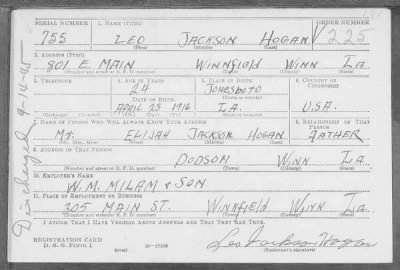 SERIAL NUMBER 1. NAME (Print) ORDER NUMBER
755 LEO JACKSON HOGAN V225
(First) (Middle) (Last)
2. ADDRESS (Print)
801 E. MAIN WINNFIELD WINN LA.
(Number and street or R. F. D. number) (Town) (County) (State)
3. TELEPHONE 4. AGE IN YEARS 5. PLACE OF BIRTH 6. COUNTRY OF CITIZENSHIP
24 JONESBORO
DATE OF BIRTH (Town or county)
APRIL 23 1916 LA. U.S.A.
(Mo.) (Day) (Yr.) (State or country)
7. NAME OF PERSON WHO WILL ALWAYS KNOW YOUR ADDRESS 8. RELATIONSHIP OF THAT PERSON
Mr. ELIJAH JACKSON HOGAN FATHER
(Mr., Mrs., Miss) (First) (Middle) (Last)
9. ADDRESS OF THAT PERSON
DODSON WINN LA.
(Number and street or R. F. D. number) (Town) (County) (State)
10. EMPLOYER'S NAME
W. M. MILAM & SON
11. PLACE OF EMPLOYMENT OR BUSINESS
305 MAIN ST. WINNFIELD WINN LA.
(Number and street or R. F. D. number) (Town) (County) (State)
I AFFIRM THAT I HAVE VERIFIED ABOVE ANSWERS AND THAT THEY ARE TRUE.
REGISTRATION CARD
D. S. S. Form 1 (over) Leo Jackson Hogan
(Registrant's signature)
Discharged 9-14-45